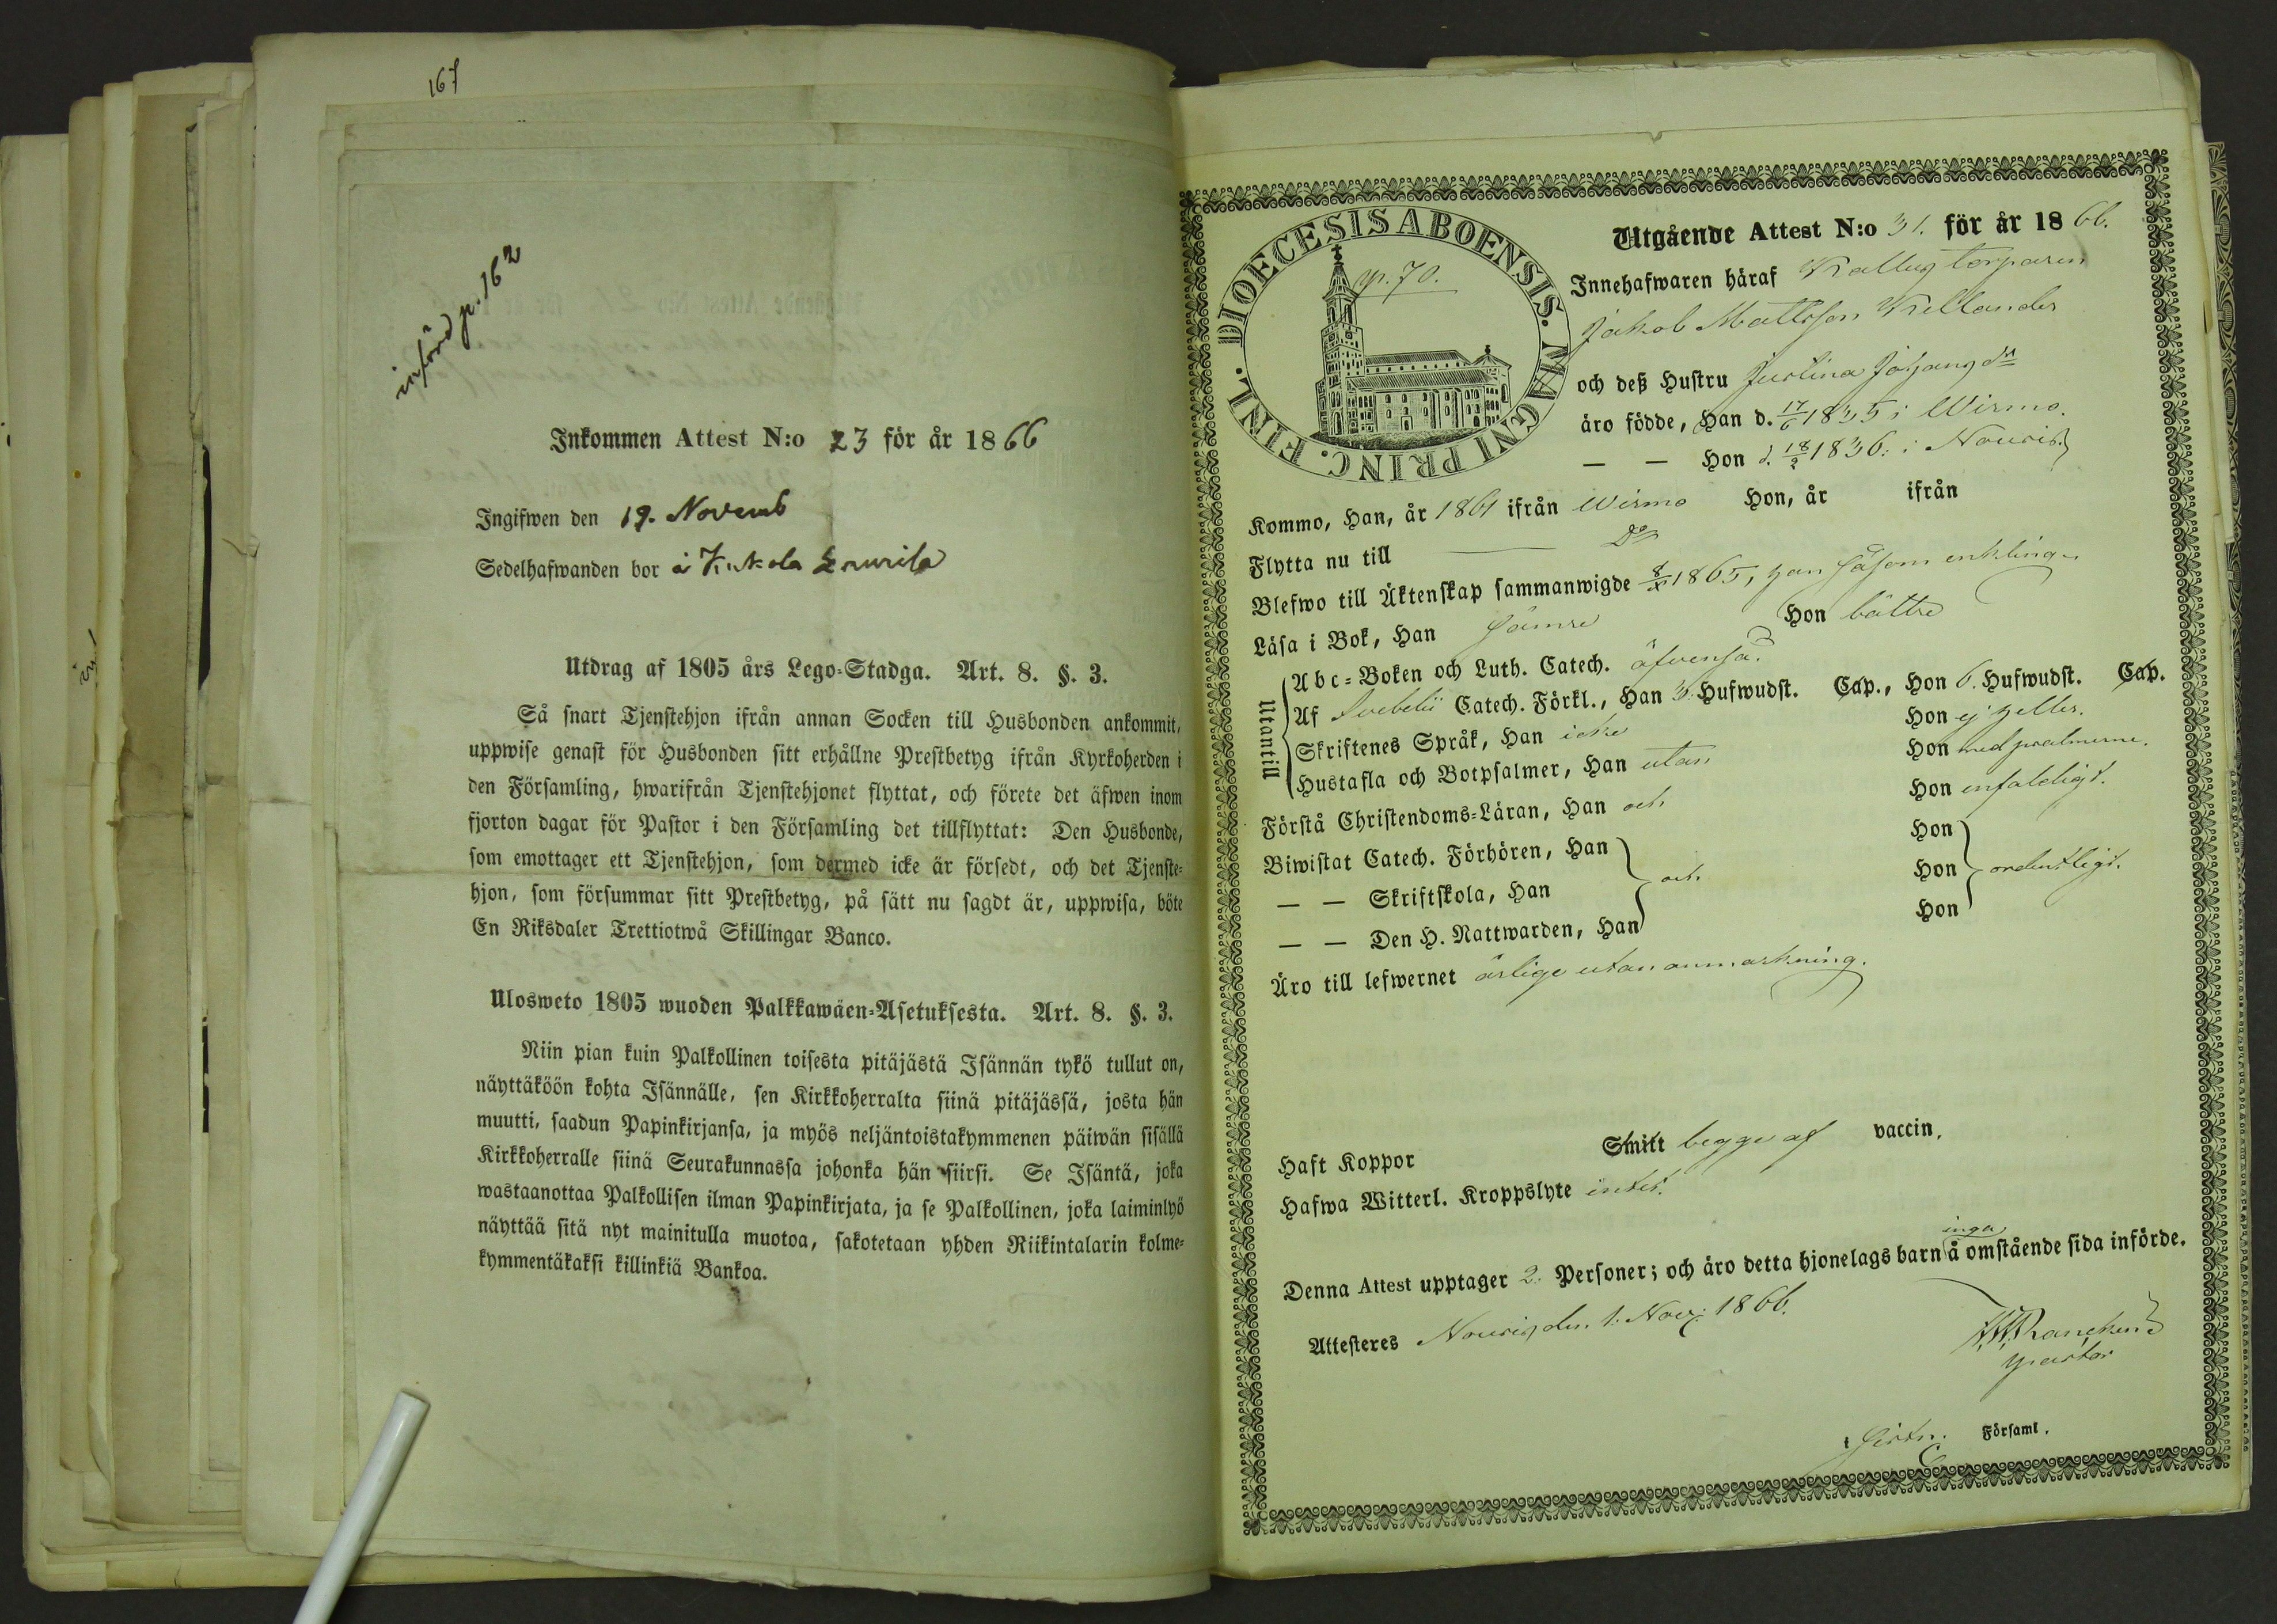 167
införd p. 162
Inkommen Attest N:o 23 för år 1866
Ingifwen den 19. Novemb
Sedelhafwanden bor å Kukola Laurila
Utdrag af 1805 års Lego-Stadga. Art. 8. §. 3.
Så snart Tjenstehjon ifrån annan Socken till Husbonden ankommit,
uppwise genast för Husbonden sitt erhållne Prestbetyg ifrån Kyrkoherden i
den Församling, hwarifrån Tjenstehjonet flyttat, och förete det äfwen inom
fjorton dagar för Pastor i den Församling det tillflyttat: Den Husbonde,
som emottager ett Tjenstehjon, som dermed icke är försedt, och det Tjenste-
hjon, som försummar sitt Prestbetyg, på sätt nu sagdt är, uppwisa, böte
En Riksdaler Trettiotwå Skillingar Banco.
Ulosweto 1805 wuoden Palkkawäen-Asetuksesta. Art. 8. §. 3.
Niin pian kuin Palkollinen toisesta pitäjästä Isännän tykö tullut on,
näyttäköön kohta Isännälle, sen Kirkkoherralta siinä pitäjässä, josta hän
muutti, saadun Papinkirjansa, ja myös neljäntoistakymmenen päiwän sisällä
Kirkkoherralle siinä Seurakunnassa johonka hän siirsi. Se Isäntä, joka
wastaanottaa Palkollisen ilman Papinkirjata, ja se Palkollinen, joka laiminlyö
näyttää sitä nyt mainitulla muotoa, sakotetaan yhden Riikintalarin kolme-
kymmentäkaksi killinkiä Bankoa.
DIOECESIS ABOENSIS. MAGNI PRINC. FINL.
p. 70.
Utgående Attest N:o 31. för år 1866.
Innehafwaren häraf torparen
Jakob Mattsson Kellander
och deß Hustru Justina Johansdr
äro födde, Han d. 17/6 1835 i Wirmo.
— — Hon d. 18/2 1836. i Nousis
Kommo, Han, år 1861 ifrån Wirmo Hon, år ifrån
Flytta nu till — Do
Blefwo till Äktenskap sammanwigde 1865, han såsom enkling
Läsa i Bok, Han sämre Hon bättre
Utantill
Abc-Boken och Luth. Catech. äfvenså.
Af Svebelii Catech. Förkl., Han 3. Hufwudst. Cap., Hon 6. Hufwudst. Cap.
Skriftenes Språk, Han icke Hon ej heller.
Hustafla och Botpsalmer, Han utan Hon med psalmerne.
Förstå Christendoms-Läran, Han och Hon enfaldigt.
Biwistat Catech. Förhören, Han Hon
— — Skriftskola, Han och Hon ordentligt.
— — Den H. Nattwarden, Han Hon
Äro till lefwernet ärlige utan anmärkning.
Haft Koppor Smitt begge af vaccin.
Hafwa Witterl. Kroppslyte intet.
Denna Attest upptager 2. Personer; och äro detta hjonelags barn inga å omstående sida införde.
Attesteres Nousis den 1. Nov: 1866.
Rancken
pastor
Församl.